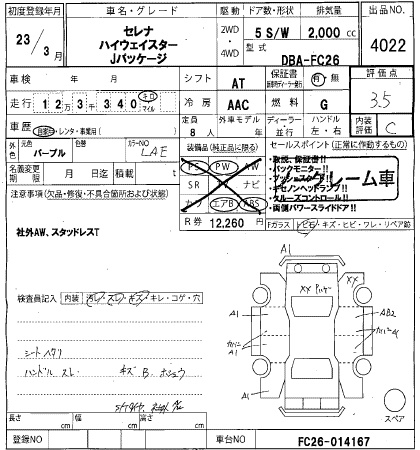 初度登録年月 車名・グレード 駆動 ドア数・形状 排気量 出品NO.
23/3月 セレナ ハイウェイスター Jパッケージ 2WD・4WD 5 S/W 2,000 cc 4022
型式 DBA-FC26
車検 年 月 シフト AT 保証書 有・無 評価点 3.5
走行 12万3千340 キロ マイル 冷房 AAC 燃料 G
車歴 自家・レンタ・事業用( ) 定員 8人 外車モデル 年 ディーラー・並行 ハンドル 左・右 内装評価 C
外色 元色 パープル 色替 カラーNO LAE
装備品(純正品に限る) PS PW AW SR ナビ カワ エアB ABS
セールスポイント(正常に作動するもの)
・取説、保証書!!
・バックモニター!!
・キセノンヘッドランプ!!
・クルーズコントロール!!
・両側パワースライドドア!!
クレーム車
名義変更期限 月 日迄 積載 t
注意事項(欠品・修復・不具合箇所および状態)
R券 12,260 円 Fガラス トビ石・キズ・ヒビ・ワレ・リペア跡
社外AW、スタッドレスT
検査員記入 内装 汚レ・スレ・キズ・キレ・コゲ・穴
シートヘタリ
ハンドル スレ キズ B
A1
XX
A1 AB2
A1
A1
スペア
長さ cm 幅 cm 高さ cm
登録NO 車台NO FC26-014167